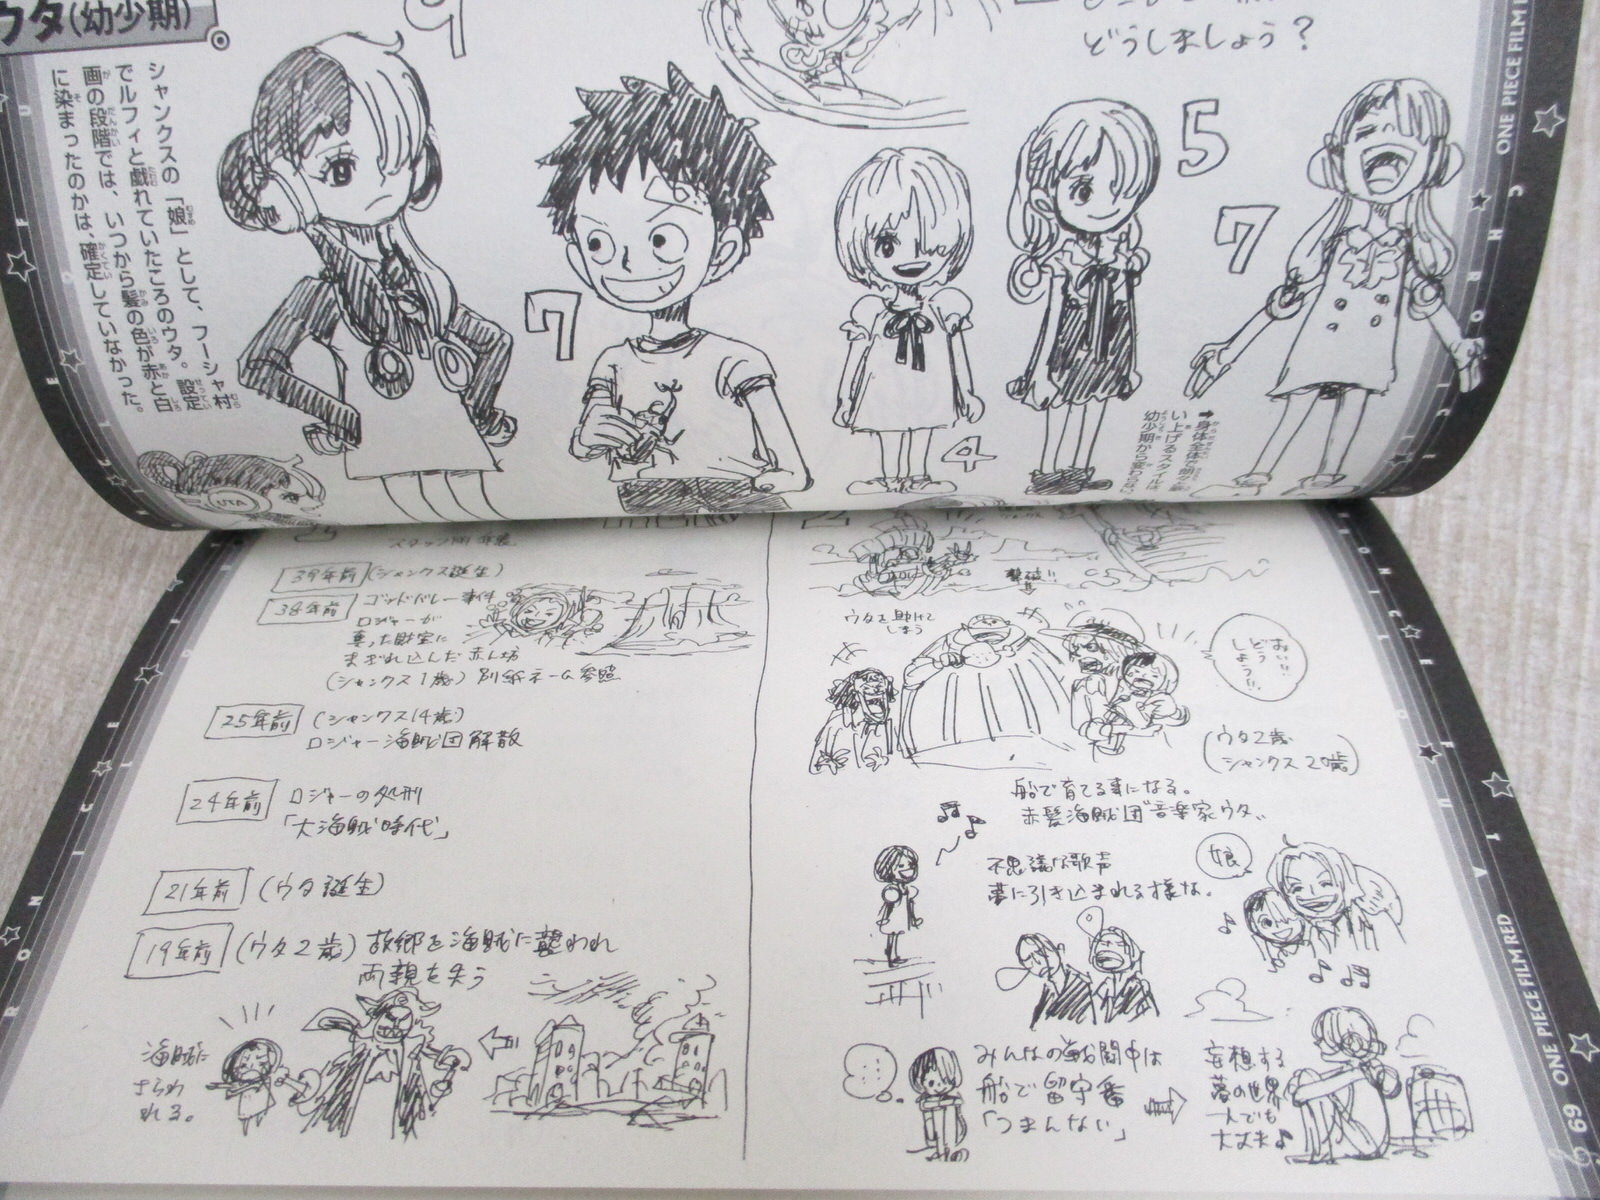 ウタ(幼少期)
シャンクスの「娘」として、フーシャ村
でルフィと戯れていたころのウタ。設定
画の段階では、いつから髪の色が赤と白
に染まったのかは、確定していなかった。
9
どうしましょう?
7
4
5
7
➡身体全体で明るく歌
い上げるスタイルは、
幼少期から変わらない
UTA
ONE PIECE FILM
39年前 (シャンクス誕生)
38年前 ゴッドバレー事件
ロジャーが
奪った財宝に
まぎれ込んだ赤ん坊
(シャンクス1歳) 別紙ネーム参照
25年前 (シャンクス14歳)
ロジャー海賊団解散
24年前 ロジャーの処刑
「大海賊時代」
21年前 (ウタ誕生)
19年前 (ウタ2歳) 故郷を海賊に襲われ
両親を失う
海賊に
さらわ
れる。
撃破!!
ウタを助けて
しまう
おい!!
どう
しよう!!
(ウタ2歳
シャンクス20歳)
船で育てる事になる。
赤髪海賊団"音楽家ウタ"
不思議な歌声
夢に引き込まれる様な。
娘
みんなの戦闘中は
船で留守番
「つまんない」
妄想する
夢の世界
一人でも
大丈夫♪
69 ONE PIECE FILM RED